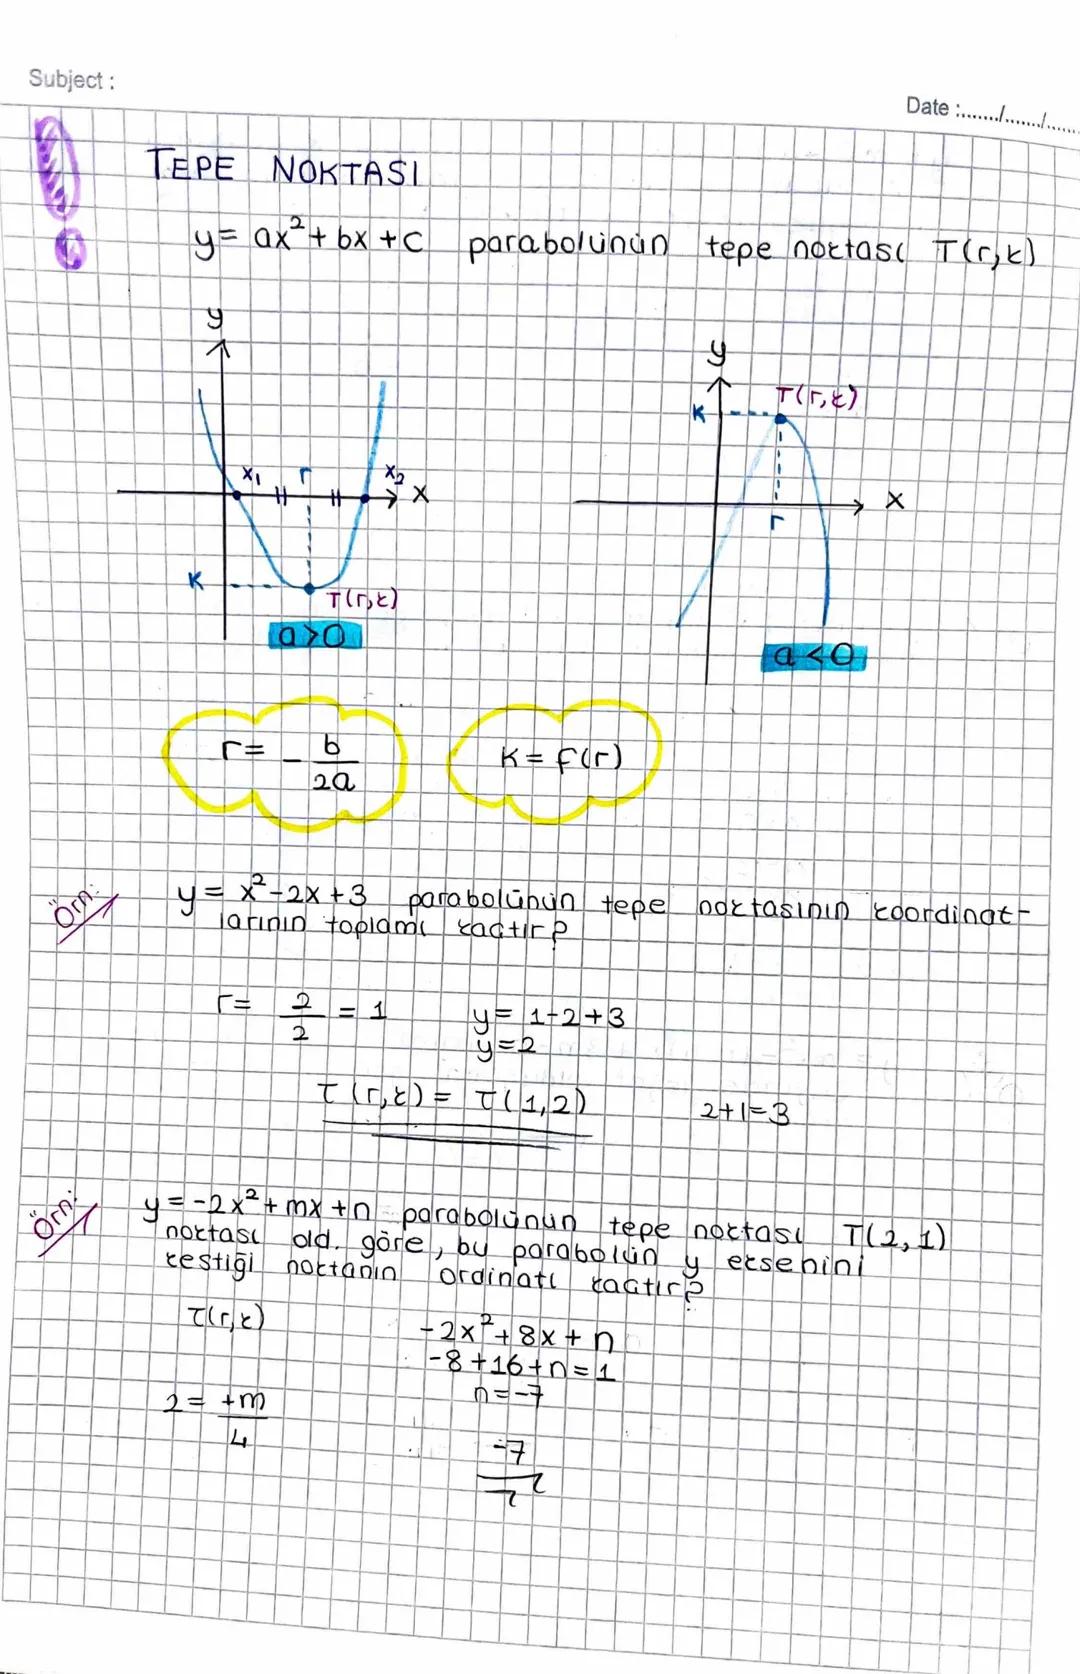 Subject :
Date :......./......./......
TEPE NOKTASI
y = ax² + bx + c parabolünün tepe noktası T(r,k)
y
x₁ r x₂ x
K
T(r,k)
a>0
y
T(r,k)
K
x
r
a<0
r = - b/2a
K = f(r)
Örn:
y = x²-2x+3 parabolünün tepe noktasının koordinat-
larının toplamı kaçtır?
r = 2/2 = 1
y = 1-2+3
y=2
T(r,k) = T(1,2)
2+1=3
Örn:
y = -2x² + mx + n parabolünün tepe noktası T(2,1)
noktası old. göre, bu parabolün y eksenini
kestiği noktanın ordinatı kaçtır?
T(r,k)
-2x² + 8x + n
-8+16+n=1
n=-7
2 = +m/4
-7